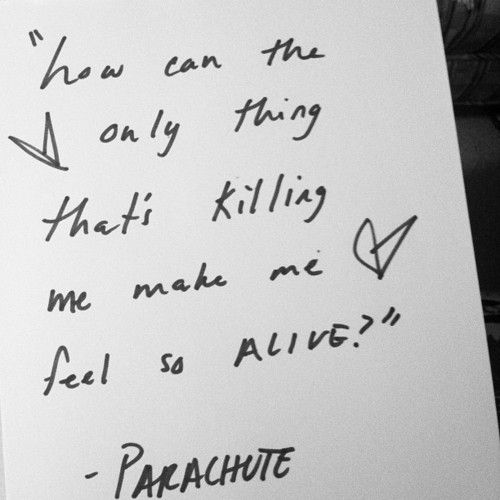 "how can the
only thing
that's killing
me make me
feel so ALIVE?"
- PARACHUTE